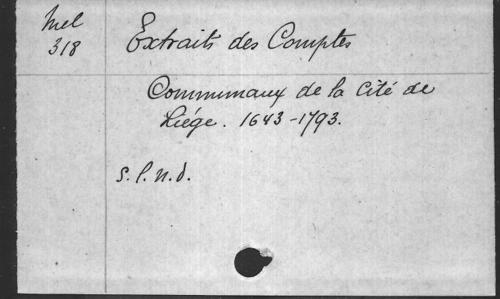 Mel
318
Extraits des Comptes
Communaux de la Cité de
Liége. 1643-1793.
s.l.n.d.